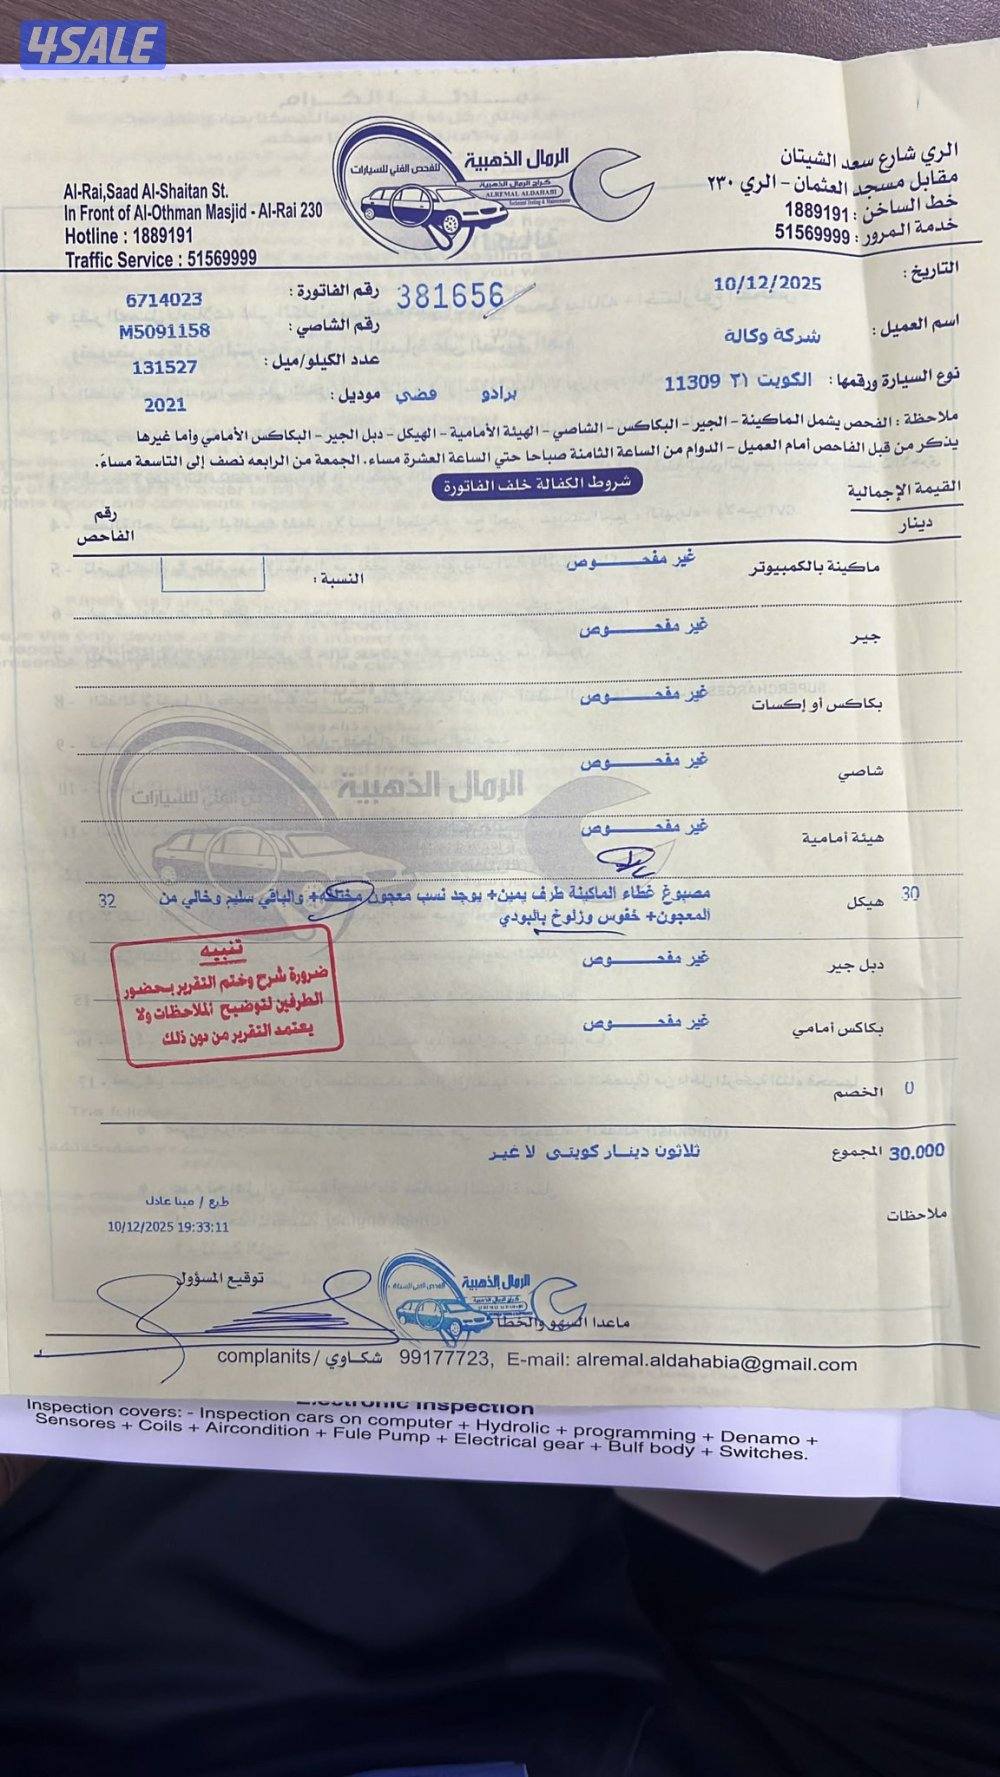 4SALE
الري شارع سعد الشيتان
مقابل مسجد العثمان - الري ٢٣٠
خط الساخن : 1889191
خدمة المرور : 51569999
الرمال الذهبية
للفحص الفني للسيارات
كراج الرمال الذهبية
ALREMAL ALDAHABI
Technical Testing & Maintenance
Al-Rai,Saad Al-Shaitan St.
In Front of Al-Othman Masjid - Al-Rai 230
Hotline : 1889191
Traffic Service : 51569999
التاريخ : 10/12/2025
381656
رقم الفاتورة : 6714023
اسم العميل : شركة وكالة
رقم الشاصي : M5091158
عدد الكيلو/ميل : 131527
نوع السيارة ورقمها : الكويت ٢١ 11309 برادو فضي
موديل : 2021
ملاحظة : الفحص يشمل الماكينة - الجير - البكاكس - الشاصي - الهيئة الأمامية - الهيكل - دبل الجير - البكاكس الأمامي وأما غيرها
يذكر من قبل الفاحص أمام العميل - الدوام من الساعة الثامنة صباحا حتي الساعة العشرة مساء. الجمعة من الرابعه نصف إلى التاسعة مساءً.
شروط الكفالة خلف الفاتورة
القيمة الإجمالية
دينار
رقم
الفاحص
ماكينة بالكمبيوتر غير مفحـــــوص النسبة :
جير غير مفحـــــوص
بكاكس أو إكسات غير مفحـــــوص
شاصي غير مفحـــــوص
هيئة أمامية غير مفحـــــوص
30 هيكل مصبوغ غطاء الماكينة طرف يمين+ يوجد نسب معجون مختلفة+ والباقي سليم وخالي من 32
المعجون+ خفوس وزلوخ بالبودي
دبل جير غير مفحـــــوص
بكاكس أمامي غير مفحـــــوص
تنبيه
ضرورة شرح وختم التقرير بحضور
الطرفين لتوضيح الملاحظات ولا
يعتمد التقرير من دون ذلك
0 الخصم
30.000 المجموع ثلاثون دينـار كويتى لا غير
ملاحظات
طبع / مينا عادل
10/12/2025 19:33:11
توقيع المسؤول
الرمال الذهبية
ماعدا السهو والخطأ
complanits / شكاوي 99177723, E-mail: alremal.aldahabia@gmail.com
Electronic Inspection
Inspection covers: - Inspection cars on computer + Hydrolic + programming + Denamo +
Sensores + Coils + Aircondition + Fule Pump + Electrical gear + Bulf body + Switches.